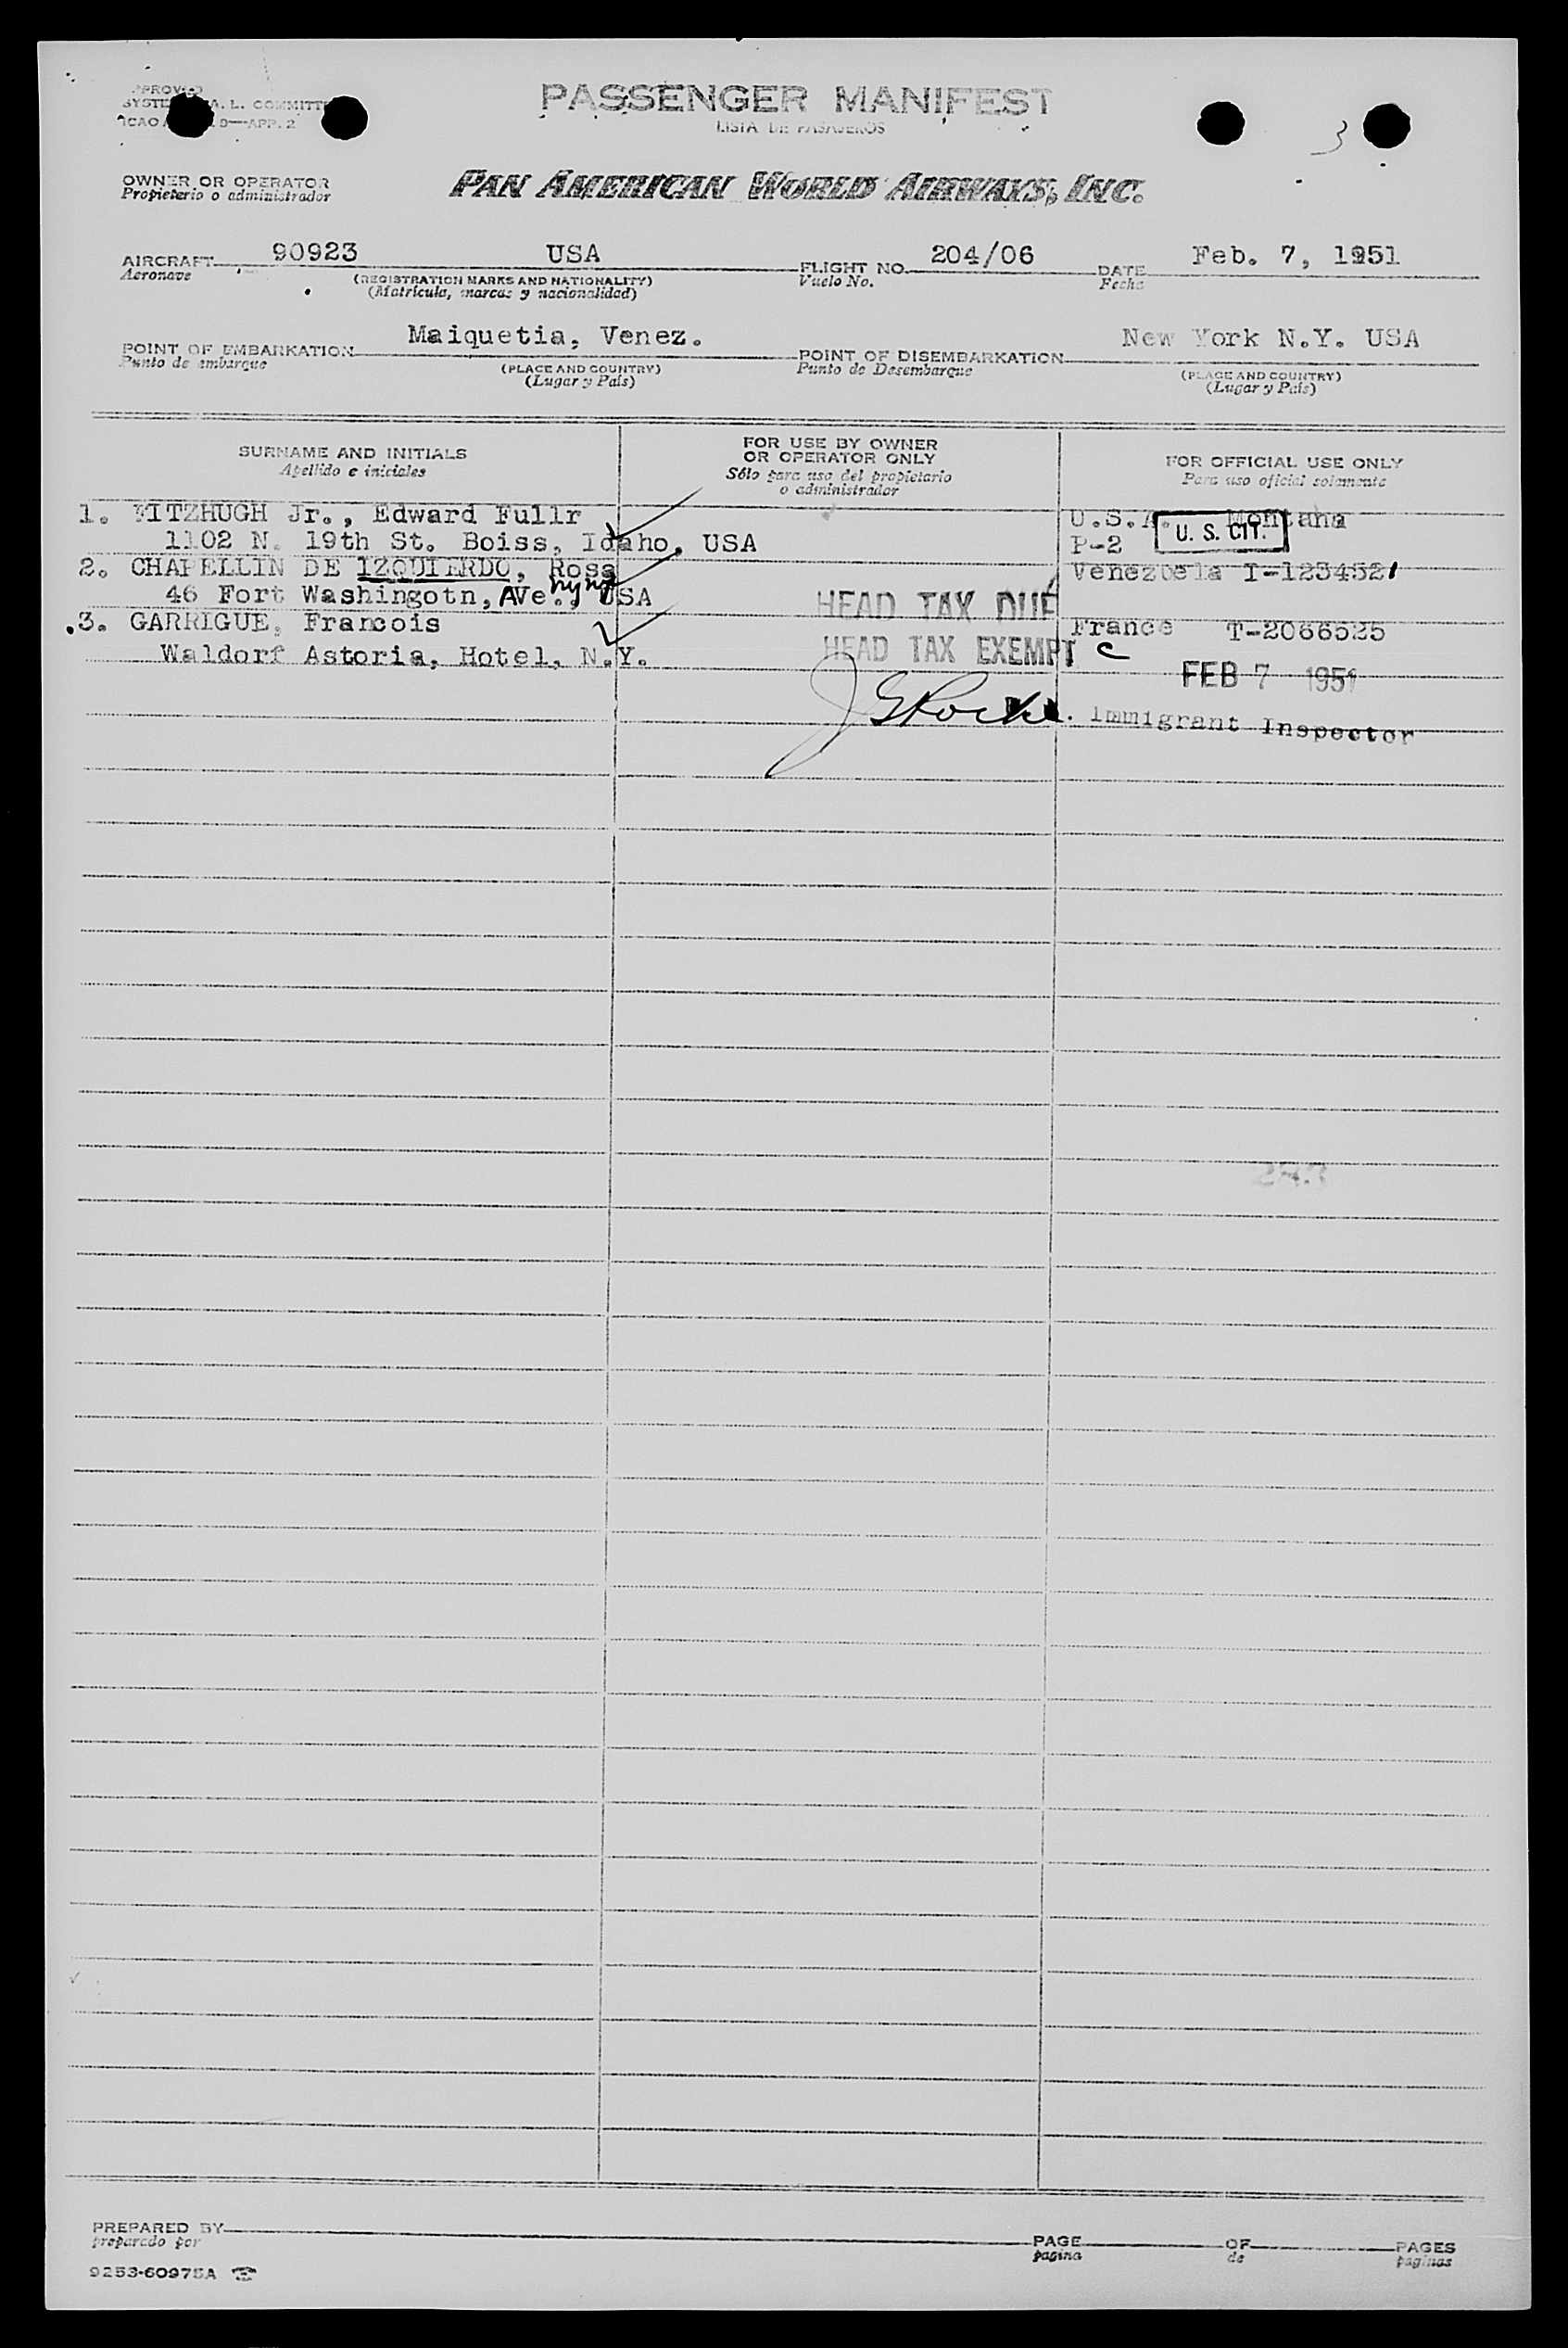 PASSENGER MANIFEST
LISTA DE PASAJEROS
3
OWNER OR OPERATOR
Propietario o administrador
PAN AMERICAN WORLD AIRWAYS, INC.
AIRCRAFT 90923 USA FLIGHT NO. 204/06 DATE Feb. 7, 1951
Aeronave (REGISTRATION MARKS AND NATIONALITY) Vuelo No. Fecha
(Matrícula, marcas y nacionalidad)
POINT OF EMBARKATION Maiquetia, Venez. POINT OF DISEMBARKATION New York N.Y. USA
Punto de embarque (PLACE AND COUNTRY) Punto de Desembarque (PLACE AND COUNTRY)
(Lugar y País) (Lugar y País)
SURNAME AND INITIALS
Apellido e iniciales
FOR USE BY OWNER
OR OPERATOR ONLY
Sólo para uso del propietario
o administrador
FOR OFFICIAL USE ONLY
Para uso oficial solamente
1. FITZHUGH Jr., Edward Fullr U.S.A. Montana
1102 N. 19th St. Boiss, Idaho, USA P-2 U. S. CIT.
2. CHAPELLIN DE IZQUIERDO, Rosa Venezuela I-1234521
46 Fort Washingotn, AVe., nyny USA HEAD TAX DUE
3. GARRIGUE, Francois France T-2066525
Waldorf Astoria, Hotel, N.Y. HEAD TAX EXEMPT C
FEB 7 1951
Immigrant Inspector
PREPARED BY PAGE OF PAGES
preparado por pagina de paginas
9253-60975A